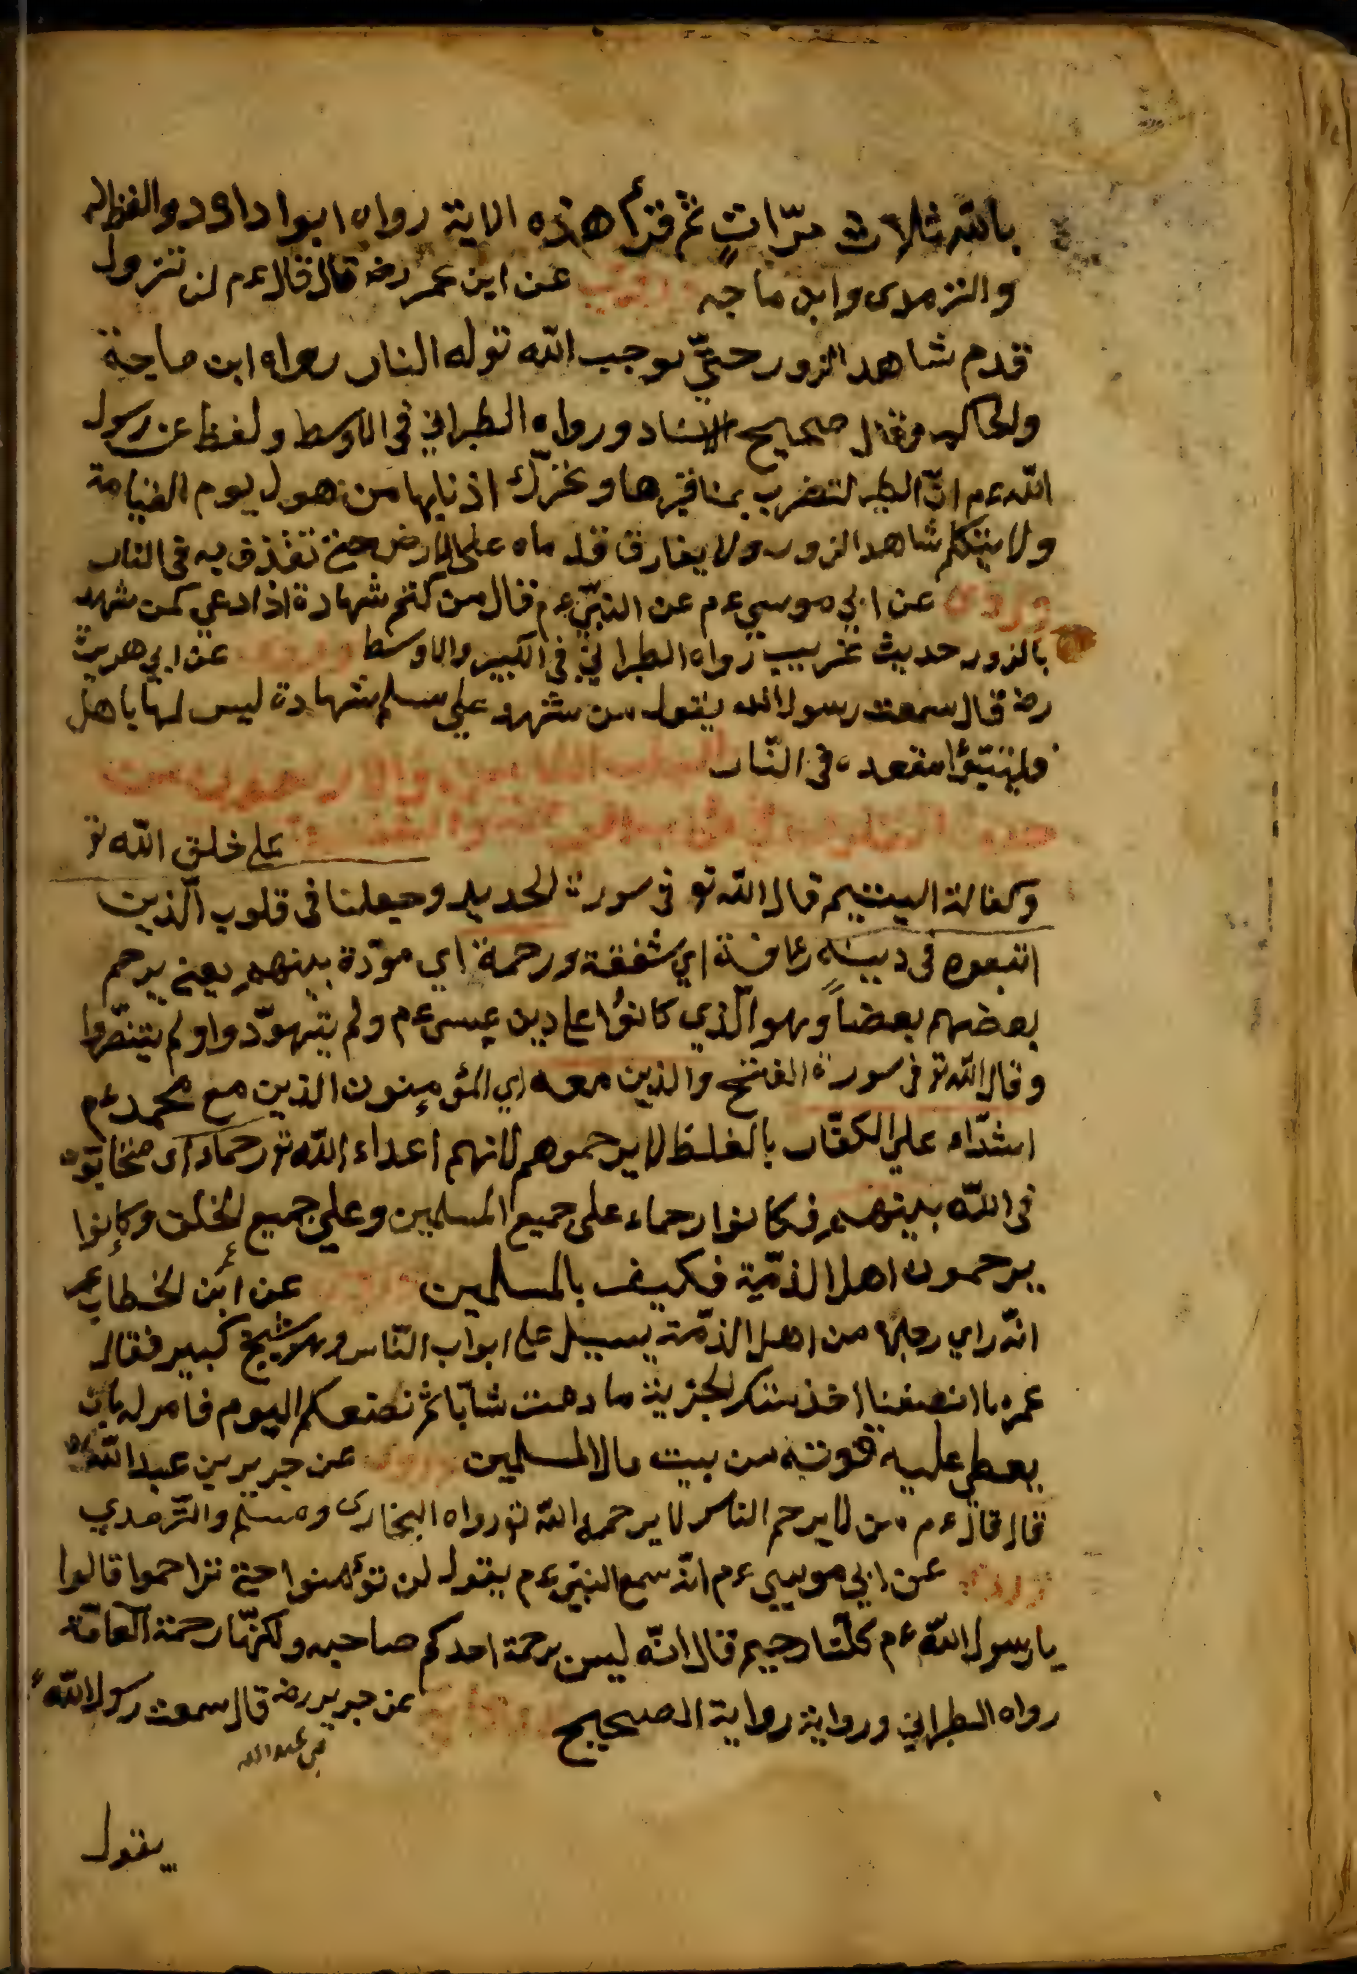 بالله ثلاث مرّاتٍ ثم قرأ هذه الاية رواه ابوا داود والفظ له
والترمدى وابن ماجه وروى عن ابن عمر رضه قال قال ءم لن تزول
قدم شاهد الزور حتيّ يوجب الله توله النار رواه ابن ماجة
ولحاكم وقال صحيح الاسناد ورواه الطبراني فى الاوسط ولفظ عن رسول
الله ءم انّ الطير لتضرب بمناقيرها وتحرّك اذنابها من هول يوم القيامة
ولا يتكلم شاهد الزور ولا يفارق قدماه على الارض حتي تقذف به فى النار
وروى عن ابي موسي ءم عن النبيّ ءم قال من كتم شهادة اذا دعي كمن شهد
بالزور حديث غريب رواه الطبراني فى الكبير والاوسط وروى عن ابي هريرة
رضه قال سمعت رسول الله يقول من شهد علي مسلم شهادة ليس لها باهل
فليتبوّأ مقعده فى النّار الباب الثامن والاربعون
على خلق الله تو
وكفالة اليتيم قال الله تو فى سورة لحديد وجعلنا فى قلوب الّذين
اتبعوه فى دينه رءافة اي شفقة ورحمة اي مودّة بينهم يعني يرحم
بعضهم بعضاً وهو الّذي كانوُا على دين عيسى ءم ولم يتهوّدوا ولم يتنصّروا
وقال الله تو فى سورة الفتح والذين معه اي المؤمنون الذين مع محمد ءم
اشدّاء على الكفّار بالغلظ لا يرحموهم لانهم اعداء الله تو رحماء اى متحابّون
فى اللّه بينهم فكانوا رحماء على جميع المسلمين وعلي جميع لخلق وكانوا
يرحمون اهل الذمّية فكيف بالمسلمين وروى عن ابن لخطاب
انّه راي رجلا من اهل الذمّة يسيل على ابواب النّاس وهو شيخ كبير فقال
عمر ما انصفنا اخذ منكم لجزية ما دمت شابّا ثم نضعكم اليوم فامر له بان
يعطي عليه قوته من بيت مال المسلمين وروى عن جرير بن عبد اللّه
قال قال ءم من لا يرحم الناس لا يرحمه الله تو رواه البخارى ومسلم والتّرمدي
وروى عن ابي موسي ءم انّه سمع النبيّ ءم يقول لن تؤمنوا حتي تراحموا قالوا
يا رسول اللّه ءم كلّنا رحيم قال انّه ليس برحمة احدكم صاحبه ولكنّها رحمة العامّة
رواه الطبراني ورواية رواية الصحيح عن جرير رضه قال سمعت رسول اللّه ءم
بن عبد الله
يقول